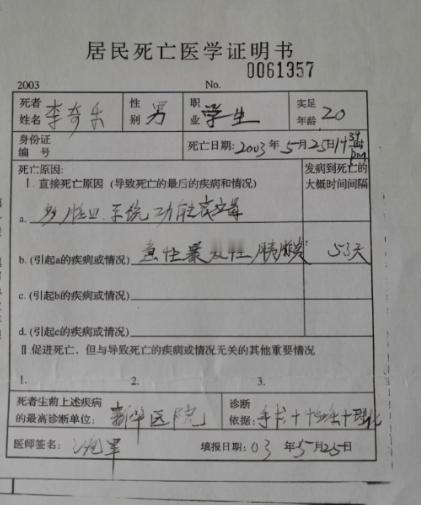 居民死亡医学证明书
0061357
2003 No.
死者姓名 李奇乐 性别 男 职业 学生 实足年龄 20
身份证编号 死亡日期: 2003 年 5 月 25 日 pm
死亡原因: 发病到死亡的大概时间间隔
I.直接死亡原因 (导致死亡的最后的疾病和情况)
a. 多脏血系统功能衰竭
b. (引起a的疾病或情况) 急性暴发性胰腺炎 53天
c. (引起b的疾病或情况)
d. (引起c的疾病或情况)
II.促进死亡，但与导致死亡的疾病或情况无关的其他重要情况
1. 2. 3.
死者生前上述疾病的最高诊断单位: 新华医院 诊断依据: 手术+临床+理化
医师签名: 填报日期: 03 年 5 月 25 日